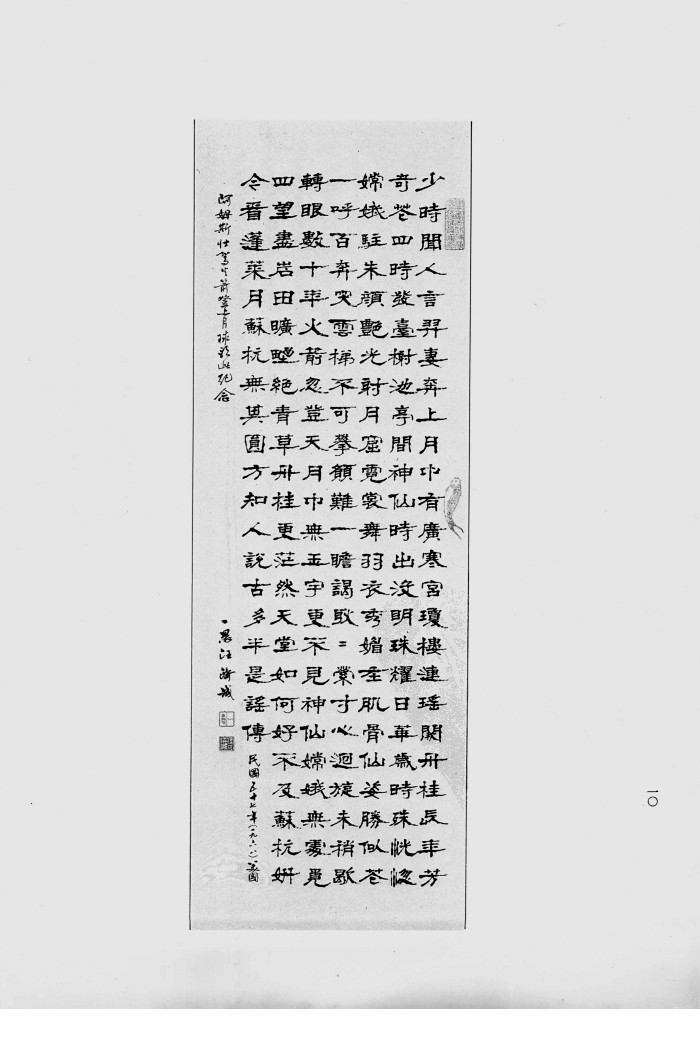 少時聞人言羿妻奔上月中有廣寒宮瓊樓連瑤闕丹桂長年芳
奇花四時發臺榭池亭間神仙時出沒明珠耀日華歲時殊恍惚
嫦娥駐朱顏艷光射月窟霓裳舞羽衣秀媚在肌骨仙姿勝似花
一呼百奔突雲梯不可攀願難一瞻謁耿耿業寸心迴旋未稍歇
轉眼數十年火箭忽登天月中無玉宇更不見神仙嫦娥無處覓
四望盡岩田曠野絕青草丹桂更茫然天堂如何好不及蘇杭妍
令看蓬萊月蘇杭無其圓方知人說古多半是謠傳
民國五十七年(一九六八)
阿姆斯壯駕火箭登上月球詩此紀念
一愚汪
一〇